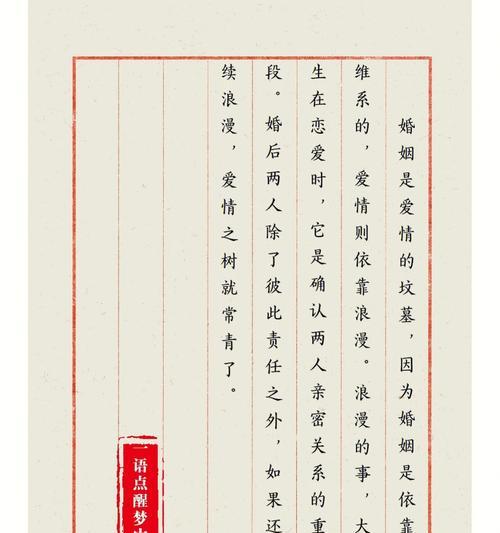 婚姻是爱情的坟墓，因为婚姻是依靠
维系的，爱情则依靠浪漫。浪漫的事，大
生在恋爱时，它是确认两人亲密关系的重
段。婚后两人除了彼此责任之外，如果还
续浪漫，爱情之树就常青了。
一语点醒梦中